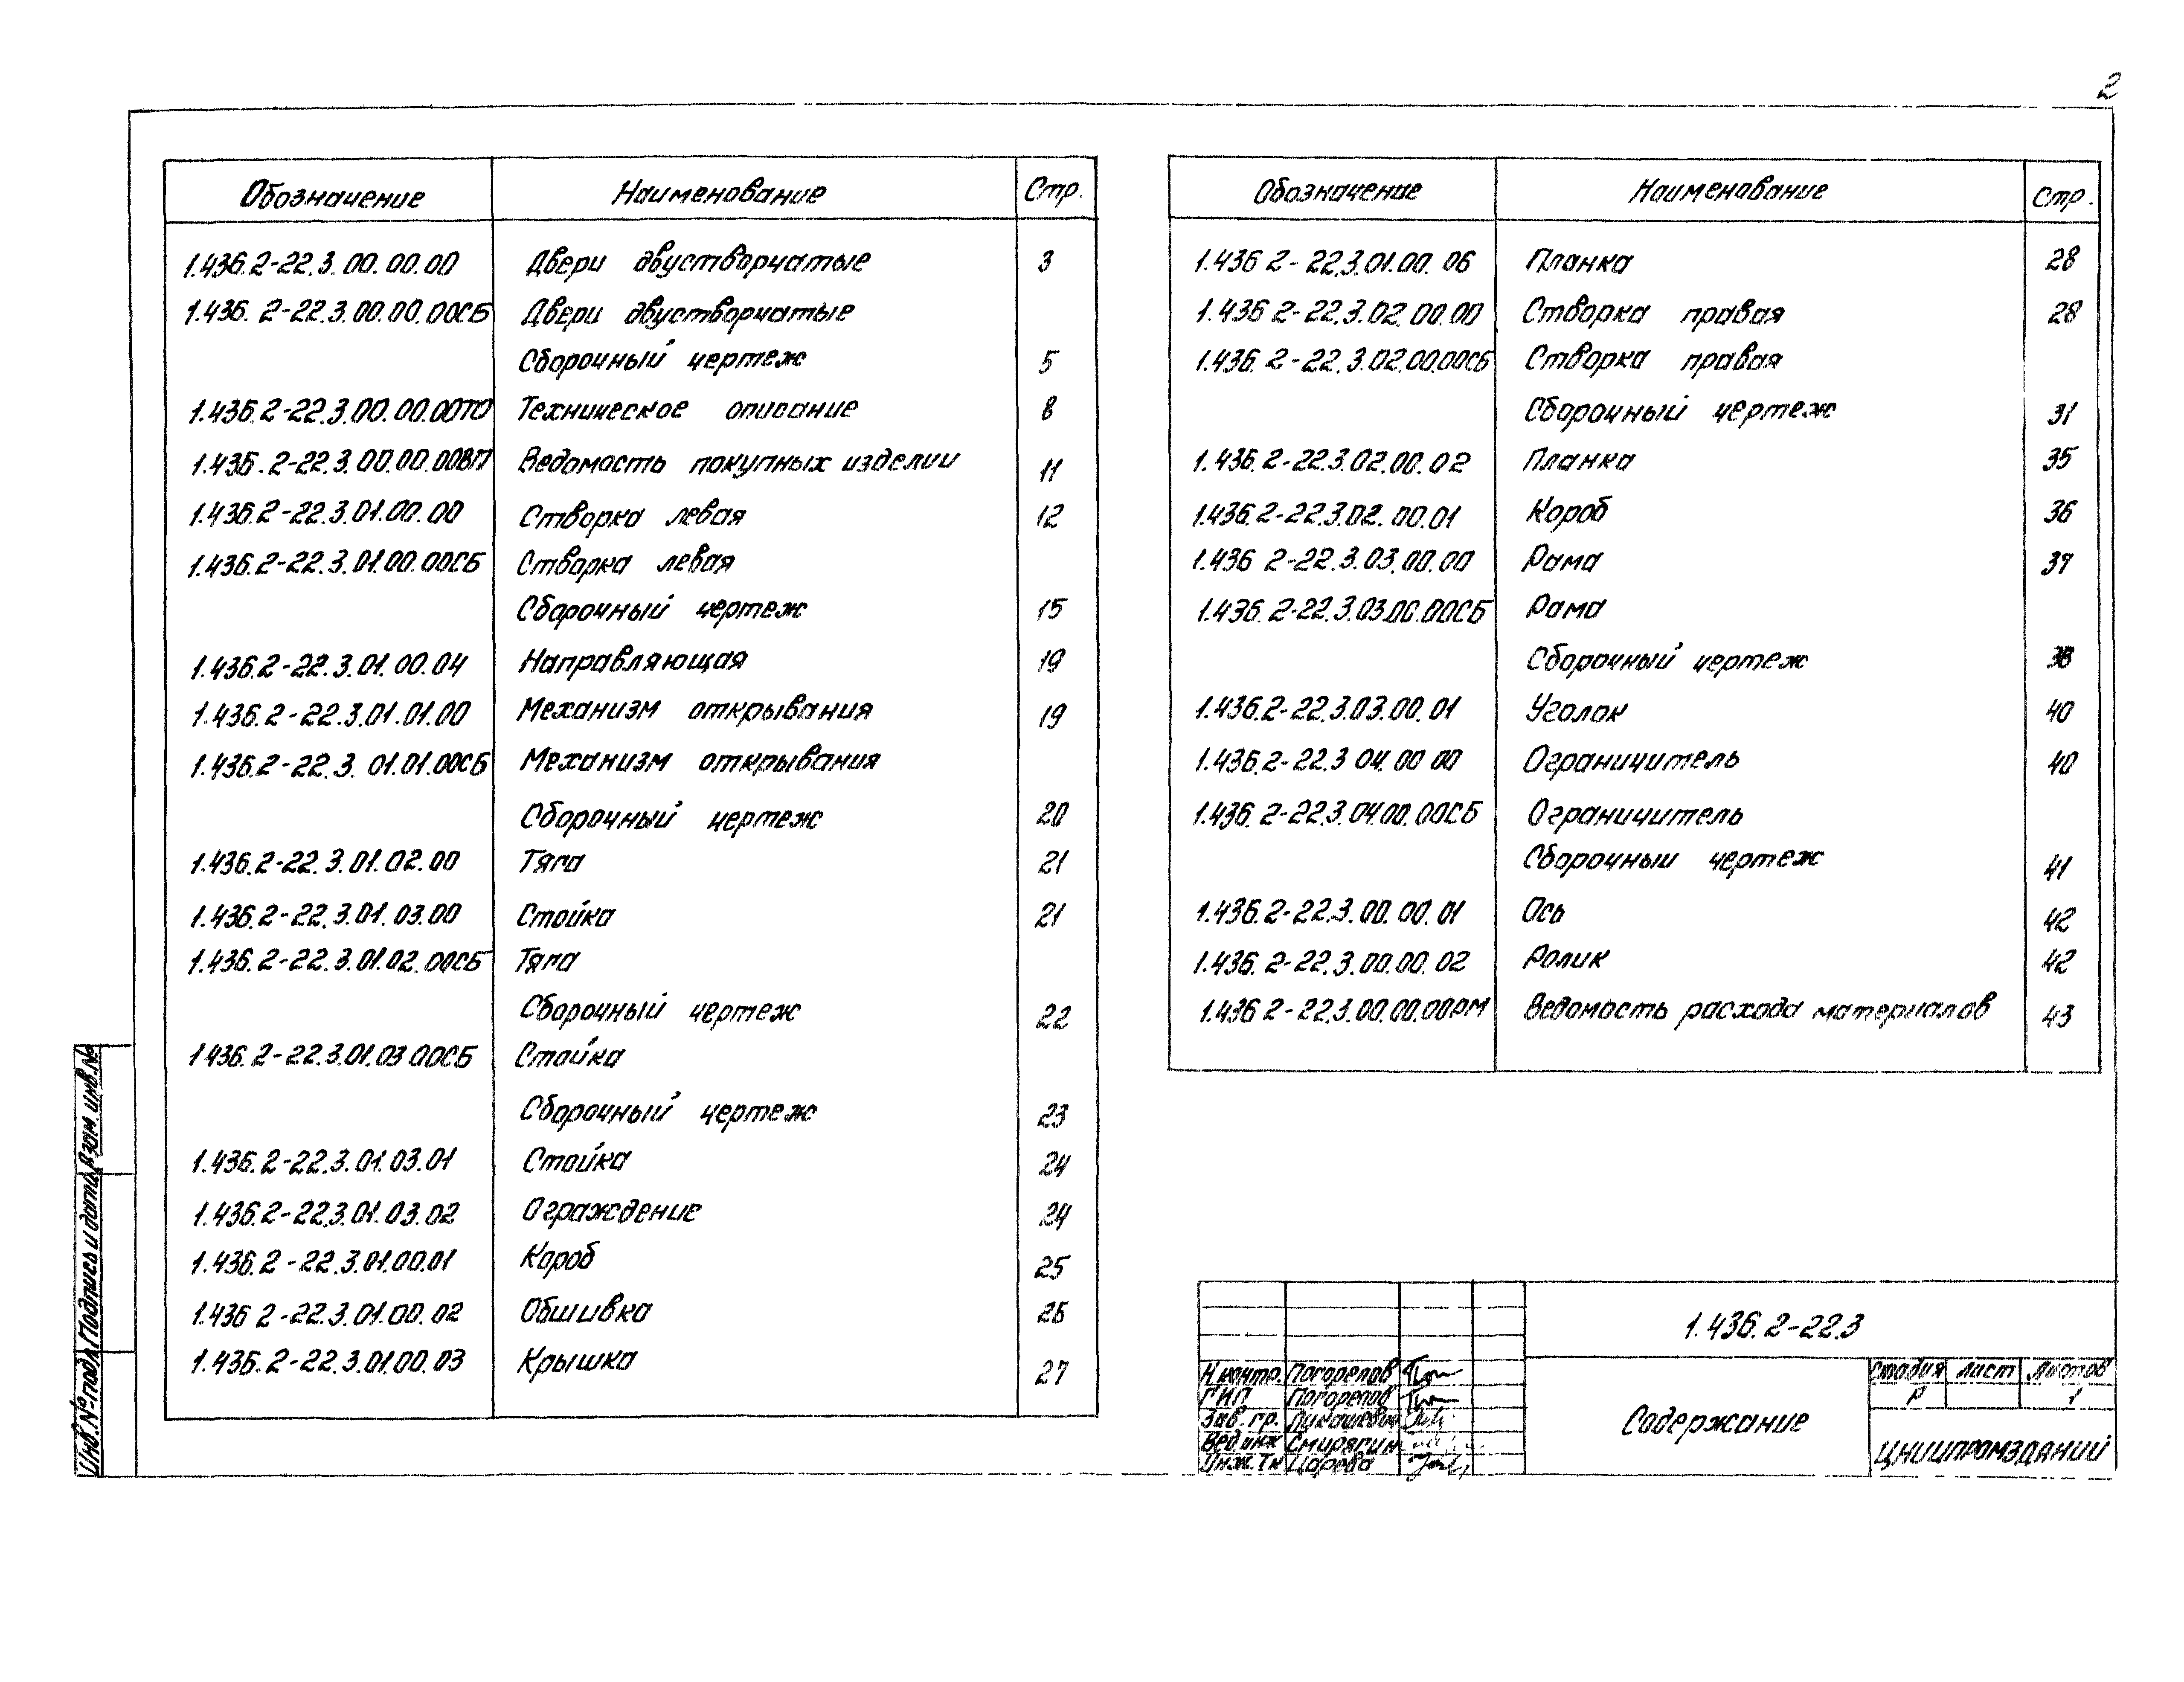 2
Обозначение Наименование Стр.
1.436.2-22.3.00.00.00 Двери двустворчатые 3
1.436.2-22.3.00.00.00СБ Двери двустворчатые
Сборочный чертеж 5
1.436.2-22.3.00.00.00ТО Техническое описание 8
1.436.2-22.3.00.00.00ВП Ведомость покупных изделии 11
1.436.2-22.3.01.00.00 Створка левая 12
1.436.2-22.3.01.00.00СБ Створка левая
Сборочный чертеж 15
1.436.2-22.3.01.00.04 Направляющая 19
1.436.2-22.3.01.01.00 Механизм открывания 19
1.436.2-22.3.01.01.00СБ Механизм открывания
Сборочный чертеж 20
1.436.2-22.3.01.02.00 Тяга 21
1.436.2-22.3.01.03.00 Стойка 21
1.436.2-22.3.01.02.00СБ Тяга
Сборочный чертеж 22
1436.2-22.3.01.03 00СБ Стойка
Сборочный чертеж 23
1.436.2-22.3.01.03.01 Стойка 24
1.436.2-22.3.01.03.02 Ограждение 24
1.436.2-22.3.01.00.01 Короб 25
1.436 2-22.3.01.00.02 Обшивка 26
1.436.2-22.3.01.00.03 Крышка 27
Обозначение Наименование Стр.
1.436 2-22.3.01.00.06 Планка 28
1.436 2-22.3.02.00.00 Створка правая 28
1.436.2-22.3.02.00.00СБ Створка правая
Сборочный чертеж 31
1.436.2-22.3.02.00.02 Планка 35
1.436.2-22.3.02.00.01 Короб 36
1.436 2-22.3.03.00.00 Рама 37
1.436.2-22.3.03.00.00СБ Рама
Сборочный чертеж 38
1.436.2-22.3.03.00.01 Уголок 40
1.436.2-22.3 04.00 00 Ограничитель 40
1.436.2-22.3.04.00.00СБ Ограничитель
Сборочный чертеж 41
1.436.2-22.3.00.00.01 Ось 42
1.436.2-22.3.00.00.02 Ролик 42
1.436 2-22.3.00.00.00РМ Ведомость расхода материалов 43
Инв.№подл. Подпись и дата Взам. инв.№
1.436.2-22.3
Н.контр. Погорелов
ГИП Погорелов
Зав.гр. Лукашевич
Вед.инж Смирягин
Инж.Iк Царева
Содержание
Стадия Лист Листов
Р 1
ЦНИИПРОМЗДАНИЙ